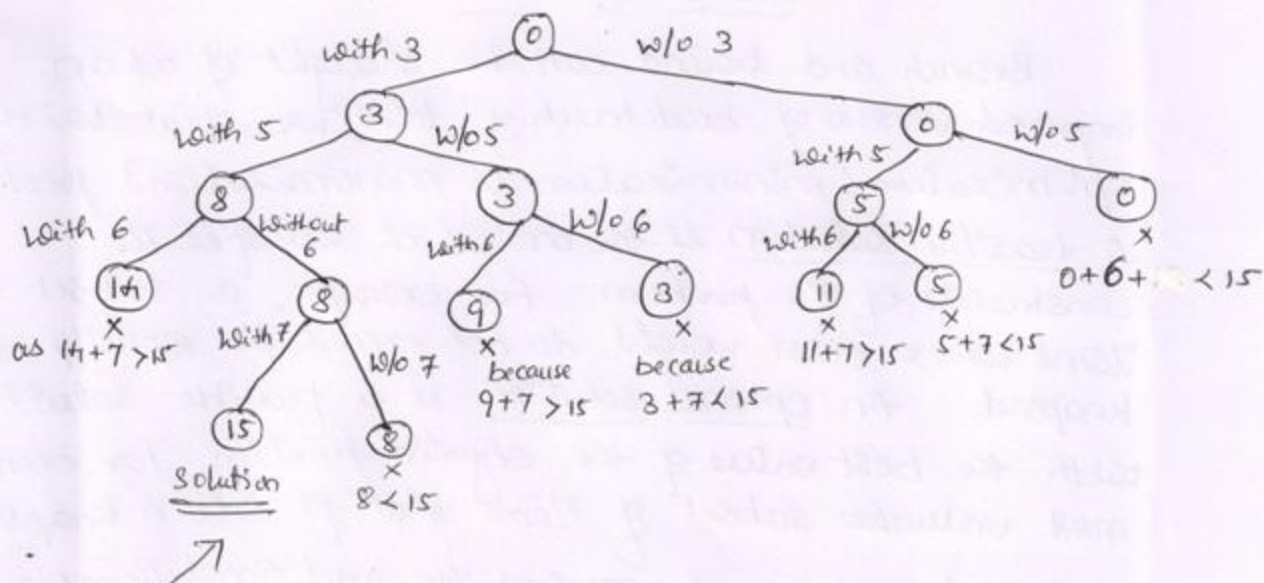 0
with 3
w/o 3
3
0
with 5
w/o 5
with 5
w/o 5
8
3
5
0
x
with 6
without
6
with 6
w/o 6
with 6
w/o 6
0+6+ < 15
14
8
9
3
11
5
x
as 14+7 >15
x
because
9+7 >15
x
because
3+7 <15
x
11+7 >15
x
5+7 <15
with 7
w/o 7
15
8
solution
x
8 < 15